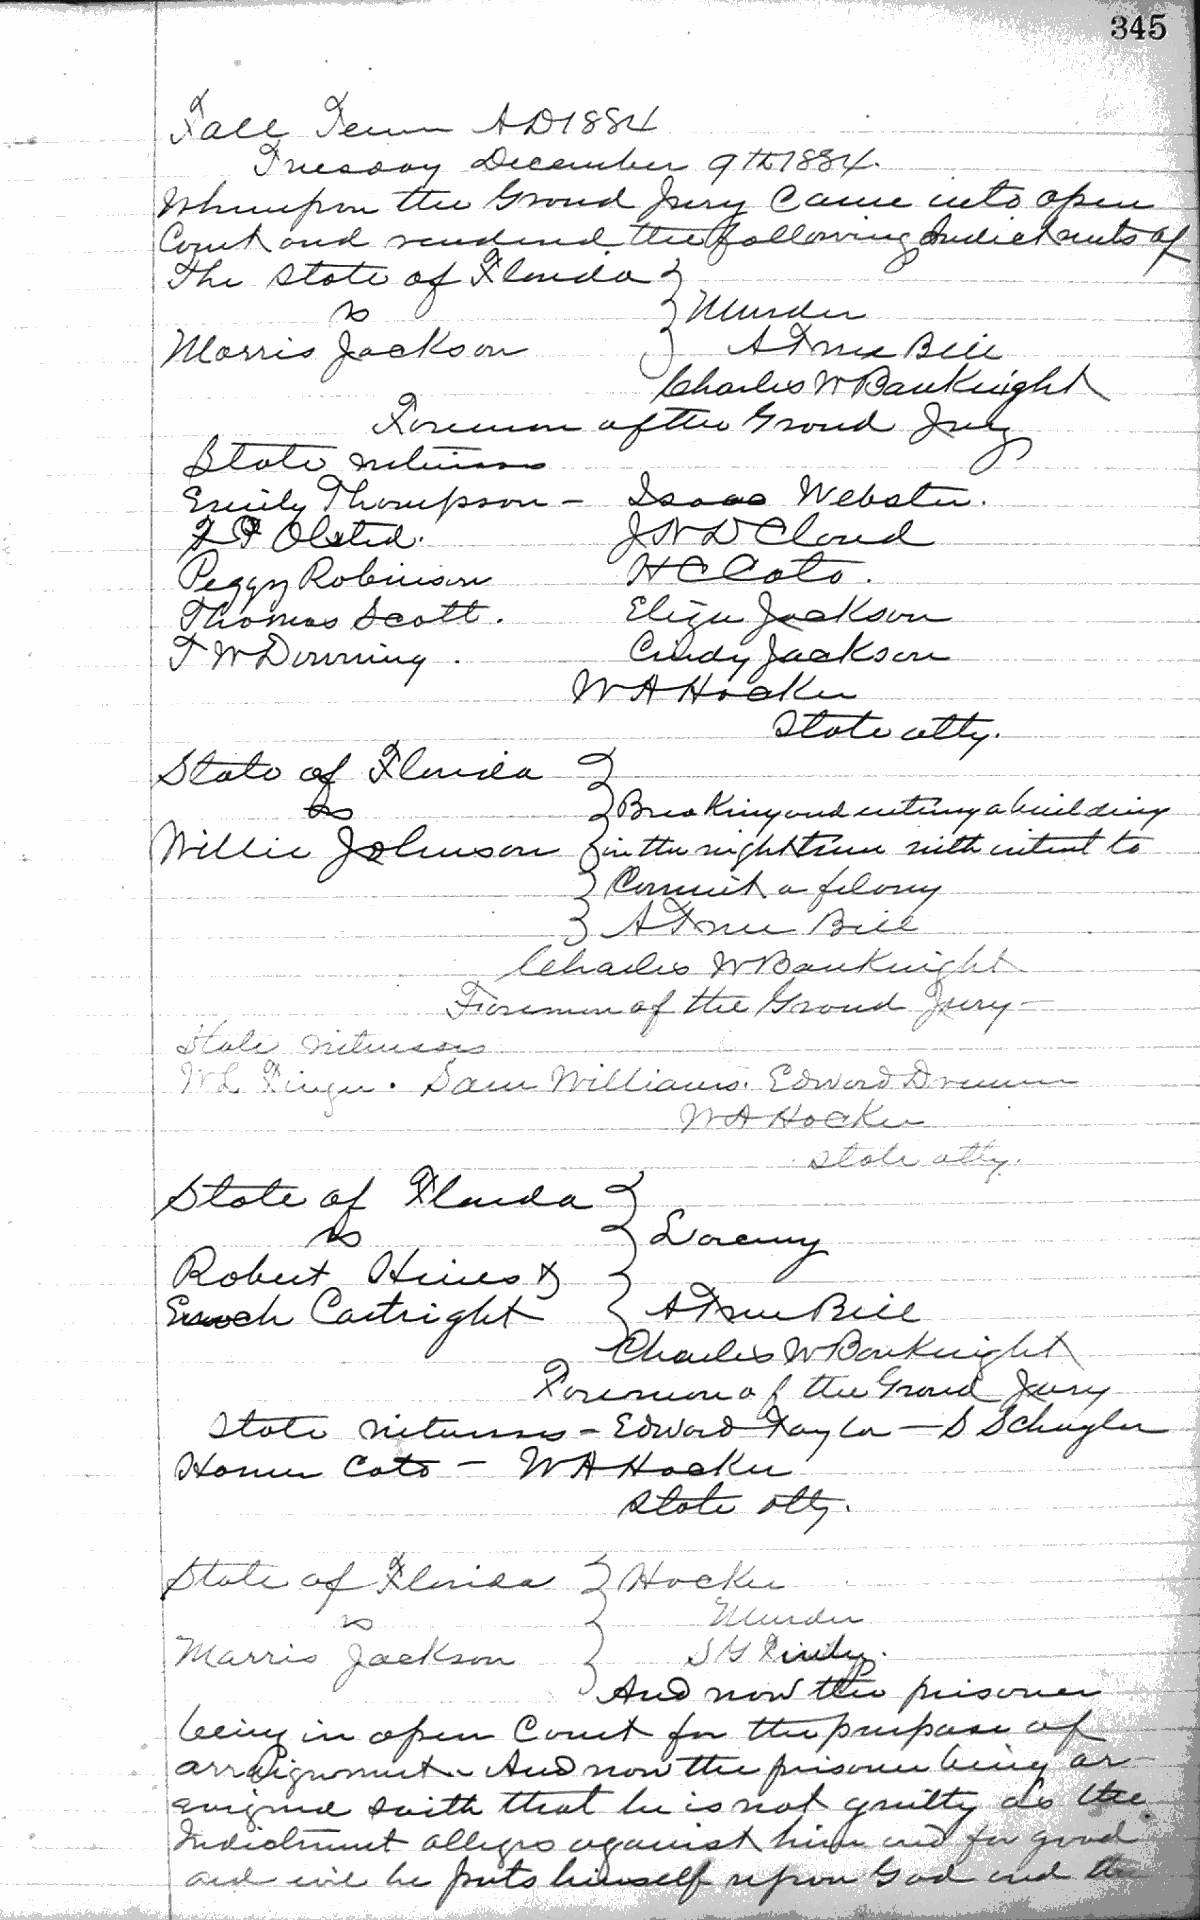 345
Fall Term AD 1884
Tuesday December 9th 1884.
Whereupon the Grand Jury Came into open
Court and rendered the following Indictments of
The State of Florida
vs
Murder
Morris Jackson
A True Bill
Charles W Bauknight
Foreman of the Grand Jury
State witnesses
Emily Thompson - Isaac Webster.
F P Olsted. J N D Cloud
Peggy Robinson H C Cato.
Thomas Scott. Eliza Jackson
T W Downing. Cindy Jackson
W A Hocker
State atty.
State of Florida
vs
Breaking and entering a building
Willie Johnson in the night time with intent to
Commit a felony
A True Bill
Charles W Bauknight
Foreman of the Grand Jury -
State witnesses
W L Finger. Sam Williams. Edward Drumm
W A Hocker
State atty.
State of Florida
vs
Larceny
Robert Hines &
Enoch Cartright A True Bill
Charles W Bauknight
Foreman of the Grand Jury
State witnesses - Edward Taylor - S Schuyler
Homer Cato - W A Hocker
State atty.
State of Florida Hocker
vs Murder
Marris Jackson S Y Finley.
And now the prisoner
being in open Court for the purpose of
arraignment. And now the prisoner being ar-
raigned saith that he is not guilty as the
Indictment alleges against him and for good
and evil he puts himself upon God and the